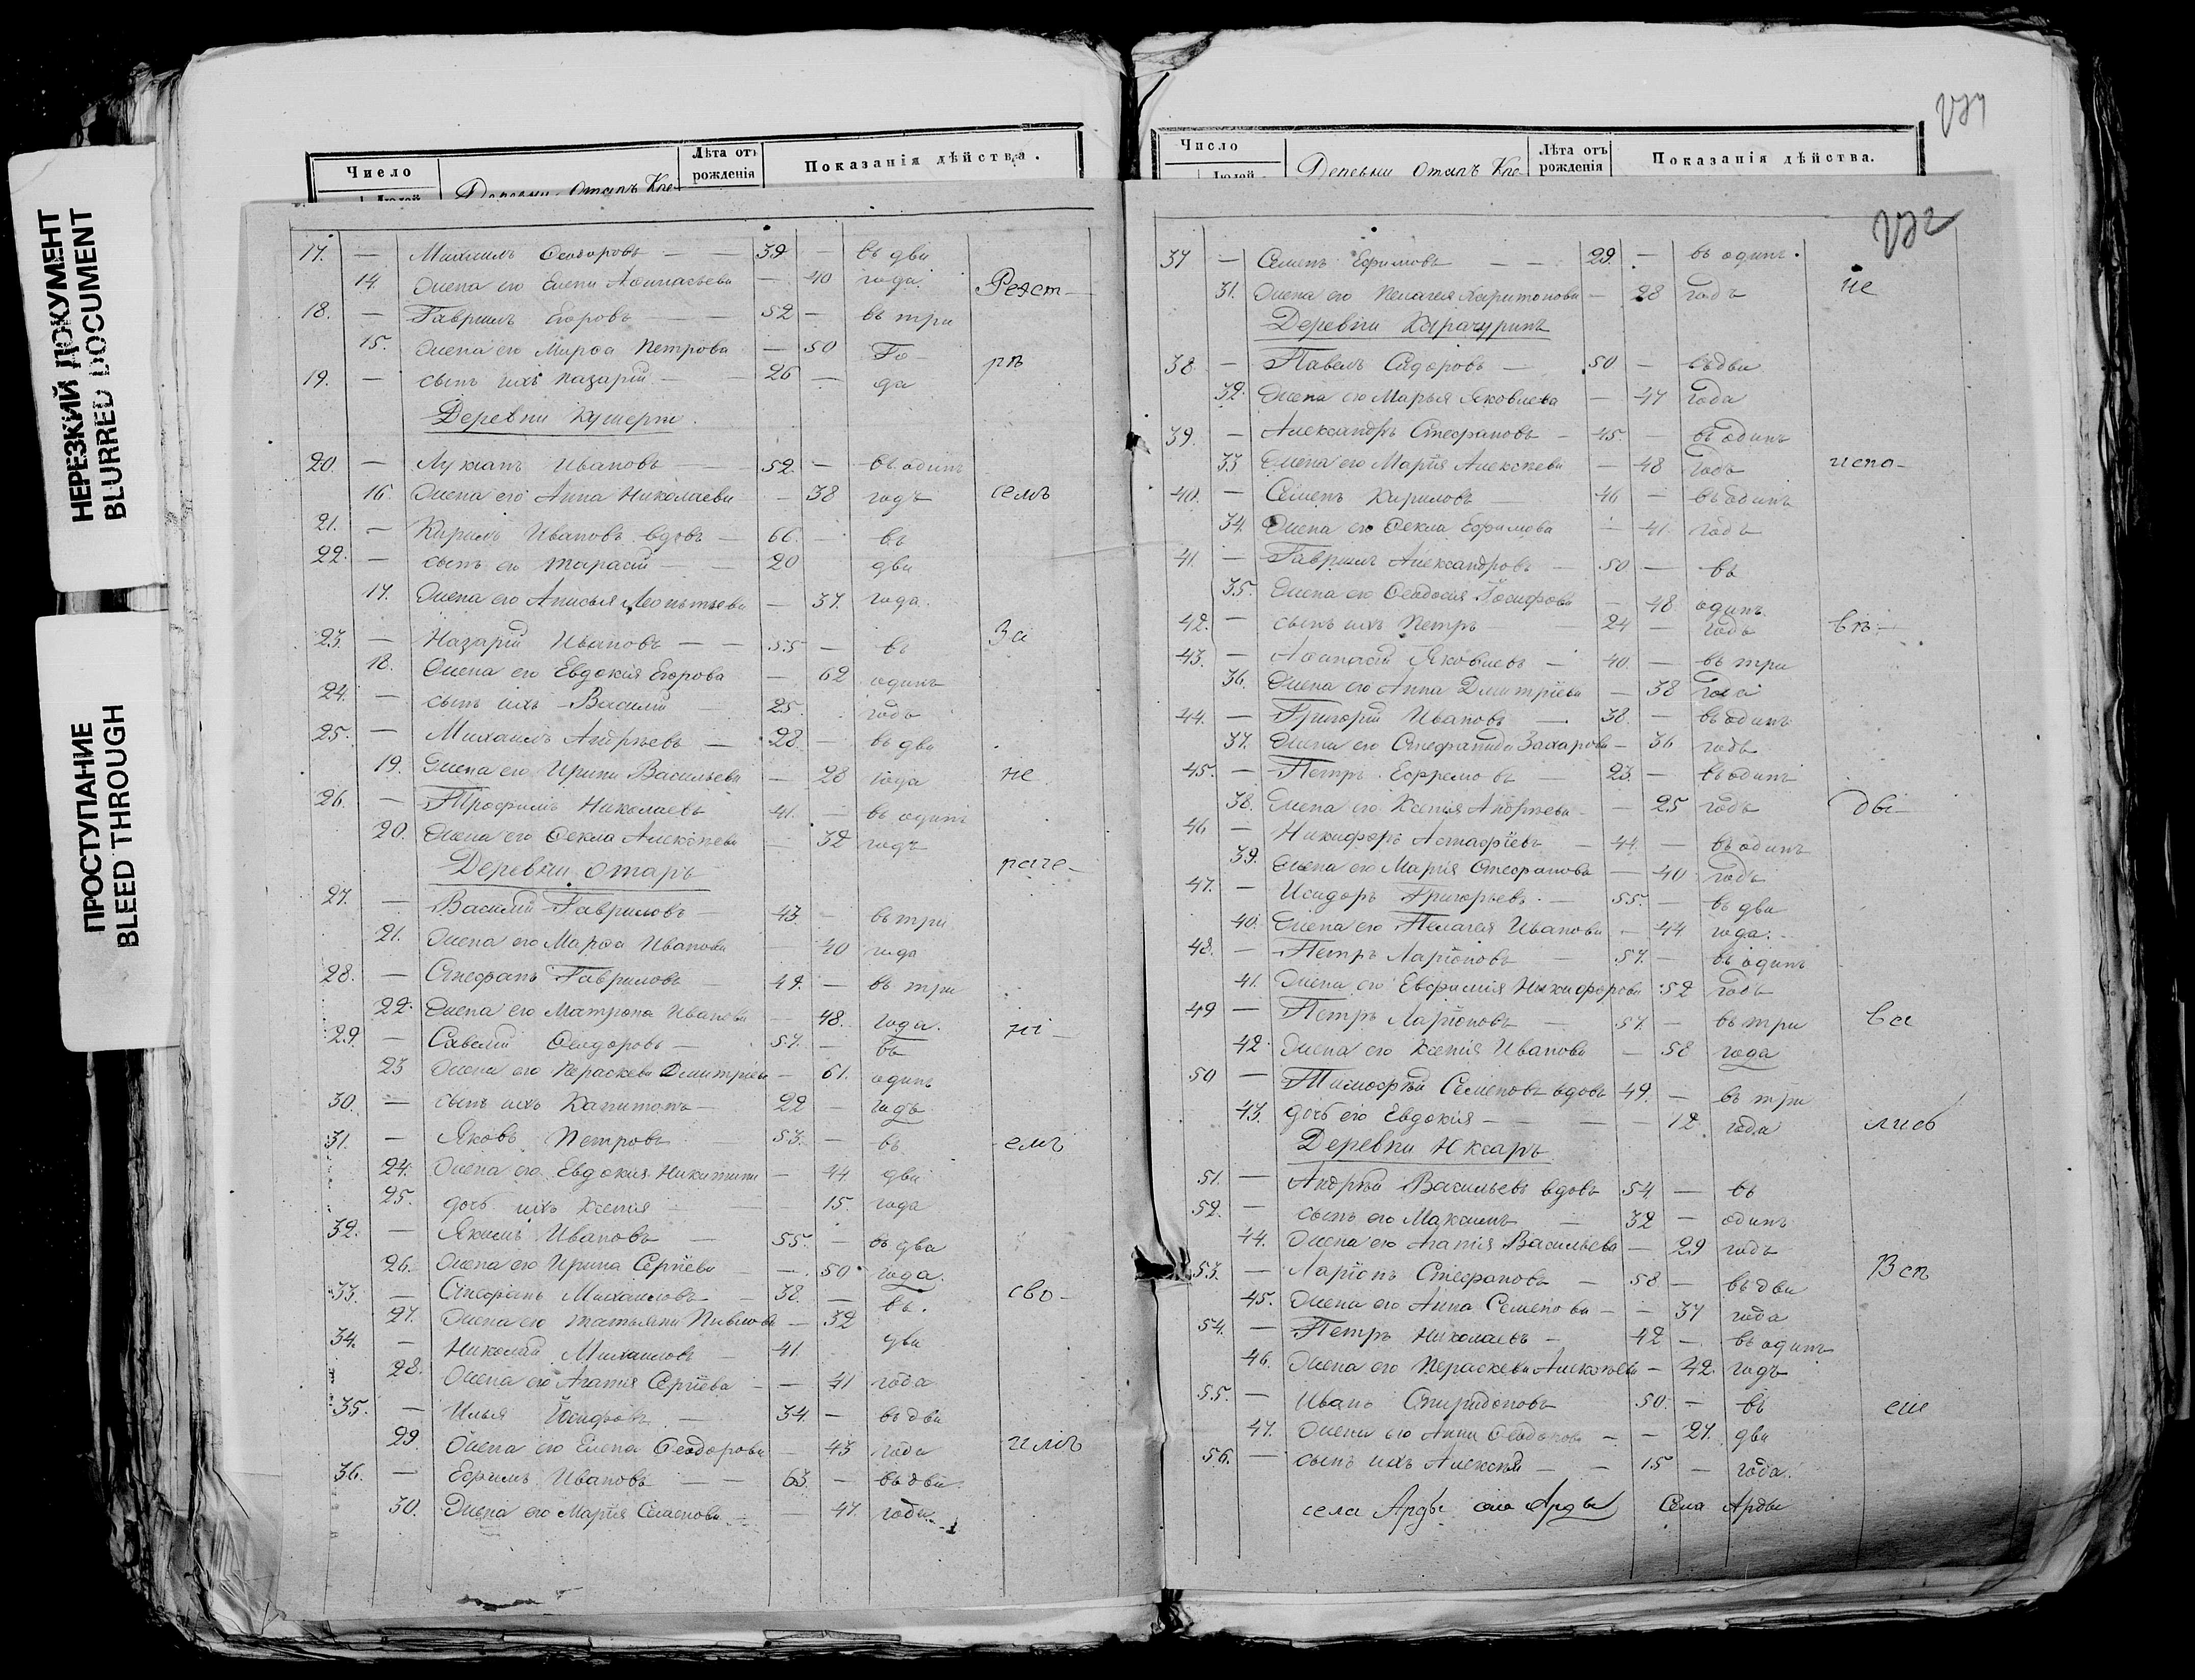 НЕРЕЗКИЙ ДОКУМЕНТ
BLURRED DOCUMENT
ПРОСТУПАНИЕ
BLEED THROUGH
Число Лѣта отъ рожденія Показанія дѣйства.
Деревни Отаръ Кре-
17. — Михаилъ Ѳеодоровъ — — 39 — въ два
14. Жена его Елена Аѳанасьева — 40 года Реэст-
18. — Гавриилъ Егоровъ — — 52 — въ три
15. Жена его Марѳа Петрова — 50 Го-
19. — сынъ ихъ Назарій — 26 — да
Деревни Кушерги
20. — Лукіанъ Ивановъ — — 52. — въ одинъ
16. Жена его Анна Николаева — 38 годъ семъ
21. — Кирилъ Ивановъ вдовъ — 66. — въ
22. — сынъ его Тарасій — — 20 два
17. Жена его Анисья Леонтьева — 37. года.
23. — Назарій Ивановъ — — 55 — въ За
18. Жена его Евдокія Егорова — 62 одинъ
24. — сынъ ихъ Василій — 25. годъ
25. — Михаилъ Андрѣевъ — 28. — въ два
19. Жена его Ирина Васильева — 28 года не
26. — Трофимъ Николаевъ 41. — въ одинъ
20. Жена его Ѳекла Алексѣева — 32 годъ
Деревни Отаръ
27. — Василій Гавриловъ — 43 — въ три
21. Жена его Марѳа Иванова — 40 года
28. — Стефанъ Гавриловъ — 49. — въ три
22. Жена его Матрона Иванова — 48. года.
29. — Савелій Ѳеодоровъ — 57. — въ
23 Жена его Пераскева Димитріева — 61. одинъ
30. — сынъ ихъ Капитонъ — 22 — годъ
31. — Яковъ Петровъ — 53. — въ емъ
24. Жена его Евдокия Никитина — 44 два
25. дочь ихъ Ксенія — 15. года
32. — Якимъ Ивановъ — 55. — въ два
26. Жена его Ирина Сергіева — 50 года.
33. — Стефанъ Михаиловъ — 38. — въ. сво-
27. Жена его Татьяна Павлова — 32
34. — Николай Михаиловъ — 41. два
28. Жена его Агатія Сергіева — — 41 года
35. — Илья Іосифовъ — 34 — въ два
29. Жена его Елена Ѳеодорова — 43 года
36. — Ефимъ Ивановъ — — 63. — въ два
30. Жена его Марія Семенова — — 47. года.
Число Лѣта отъ рожденія Показанія дѣйства.
Деревни Отаръ Кре-
37 — Семенъ Ефимовъ — — 29. — въ одинъ.
31. Жена его Пелагея Харитонова — 28 годъ не
Деревни Карачуринъ
38 — Павелъ Сидоровъ — 50 — въ два
32. Жена его Марья Яковлева — 47 года
39. — Александръ Стефановъ — 45. — въ одинъ
33 Жена его Марія Алексѣева — 48 годъ испо-
40. — Семенъ Кириловъ — 46 — въ одинъ
34. Жена его Ѳекла Ефимова — 41. годъ
41. — Гавриилъ Александровъ — 50 — въ
35. Жена его Ѳеодосія Іосифова — 48 одинъ
42. — сынъ ихъ Петръ — 24 — годъ
43. — Аѳанасій Яковлевъ — 40. — въ три
36. Жена его Анна Димитріева — 38 года
44. — Григорій Ивановъ — 38. — въ одинъ
37. Жена его Стефанида Захарова — 36 годъ
45. — Петръ Ефремовъ — 23. — въ одинъ
38. Жена его Ксенія Андрѣева — 25 годъ
46 — Никифоръ Астафіевъ — 44. — въ одинъ
39. Жена его Марія Стефанова — 40 годъ
47. — Исидоръ Григорьевъ — 55. — въ два
40. Жена его Пелагея Иванова — 44 года.
48. — Петръ Ларіоновъ — 57. — въ одинъ
41. Жена его Евфимія Никифорова 52 годъ
49 — Петръ Ларіоновъ — 57. — въ три ва
42. Жена его Ксенія Иванова — 58 года
50 — Тимоѳей Семеновъ вдовъ 49. — въ три
43. дочь его Евдокія — — — 12. года
Деревни Нксаръ
51. — Андрей Васильевъ вдовъ 54 — въ
52. — сынъ его Максимъ — 32 — одинъ
44. Жена его Агатія Васильева — 29 годъ
53. — Ларіонъ Стефановъ — 58 — въ два
45. Жена его Анна Семенова — — 37 года
54. — Петръ Николаевъ — 42 — въ одинъ
46. Жена его Пераскева Алексѣева — 42. годъ
55. — Иванъ Спиридоновъ 50. — въ
47. Жена его Анна Ѳеодорова — — 27. два
56. — сынъ ихъ Алексѣй — — 15 — года.
села Арды села Арды Села Арды